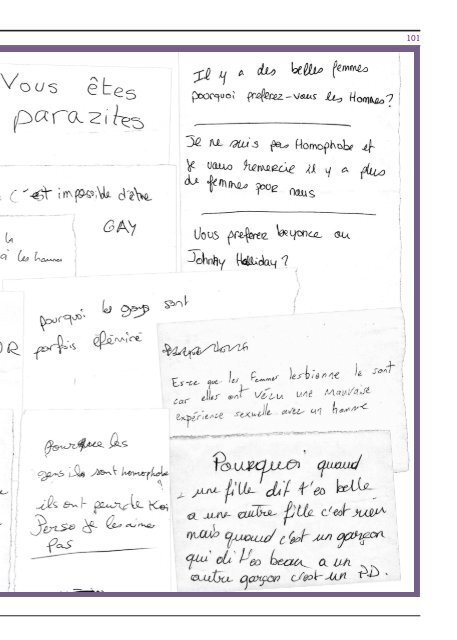 101
Vous êtes
parazites
Il y a des belles femmes
pourquoi preferez-vous les Hommes?
Je ne suis pas Homophobe et
je vous remercie il y a plus
de femmes pour nous
Vous preferez beyonce ou
Johnny Halliday?
C'est impossible d'être
GAY
à les
pourquoi les gays sont
parfois éféminé
OR
Es-ce que les Femmes lesbienne le sont
car elles ont vécu une mauvaise
expérience sexuelle avec un homme
pourquoi les
gens ils sont homophobe
ils ont peur de Koi
Perso je les aime
pas
Pourquoi quand
une fille dit t'es belle
a une autre fille c'est rien
mais quand c'est un garçon
qui dit t'es beau a un
autre garçon c'est un P.D.